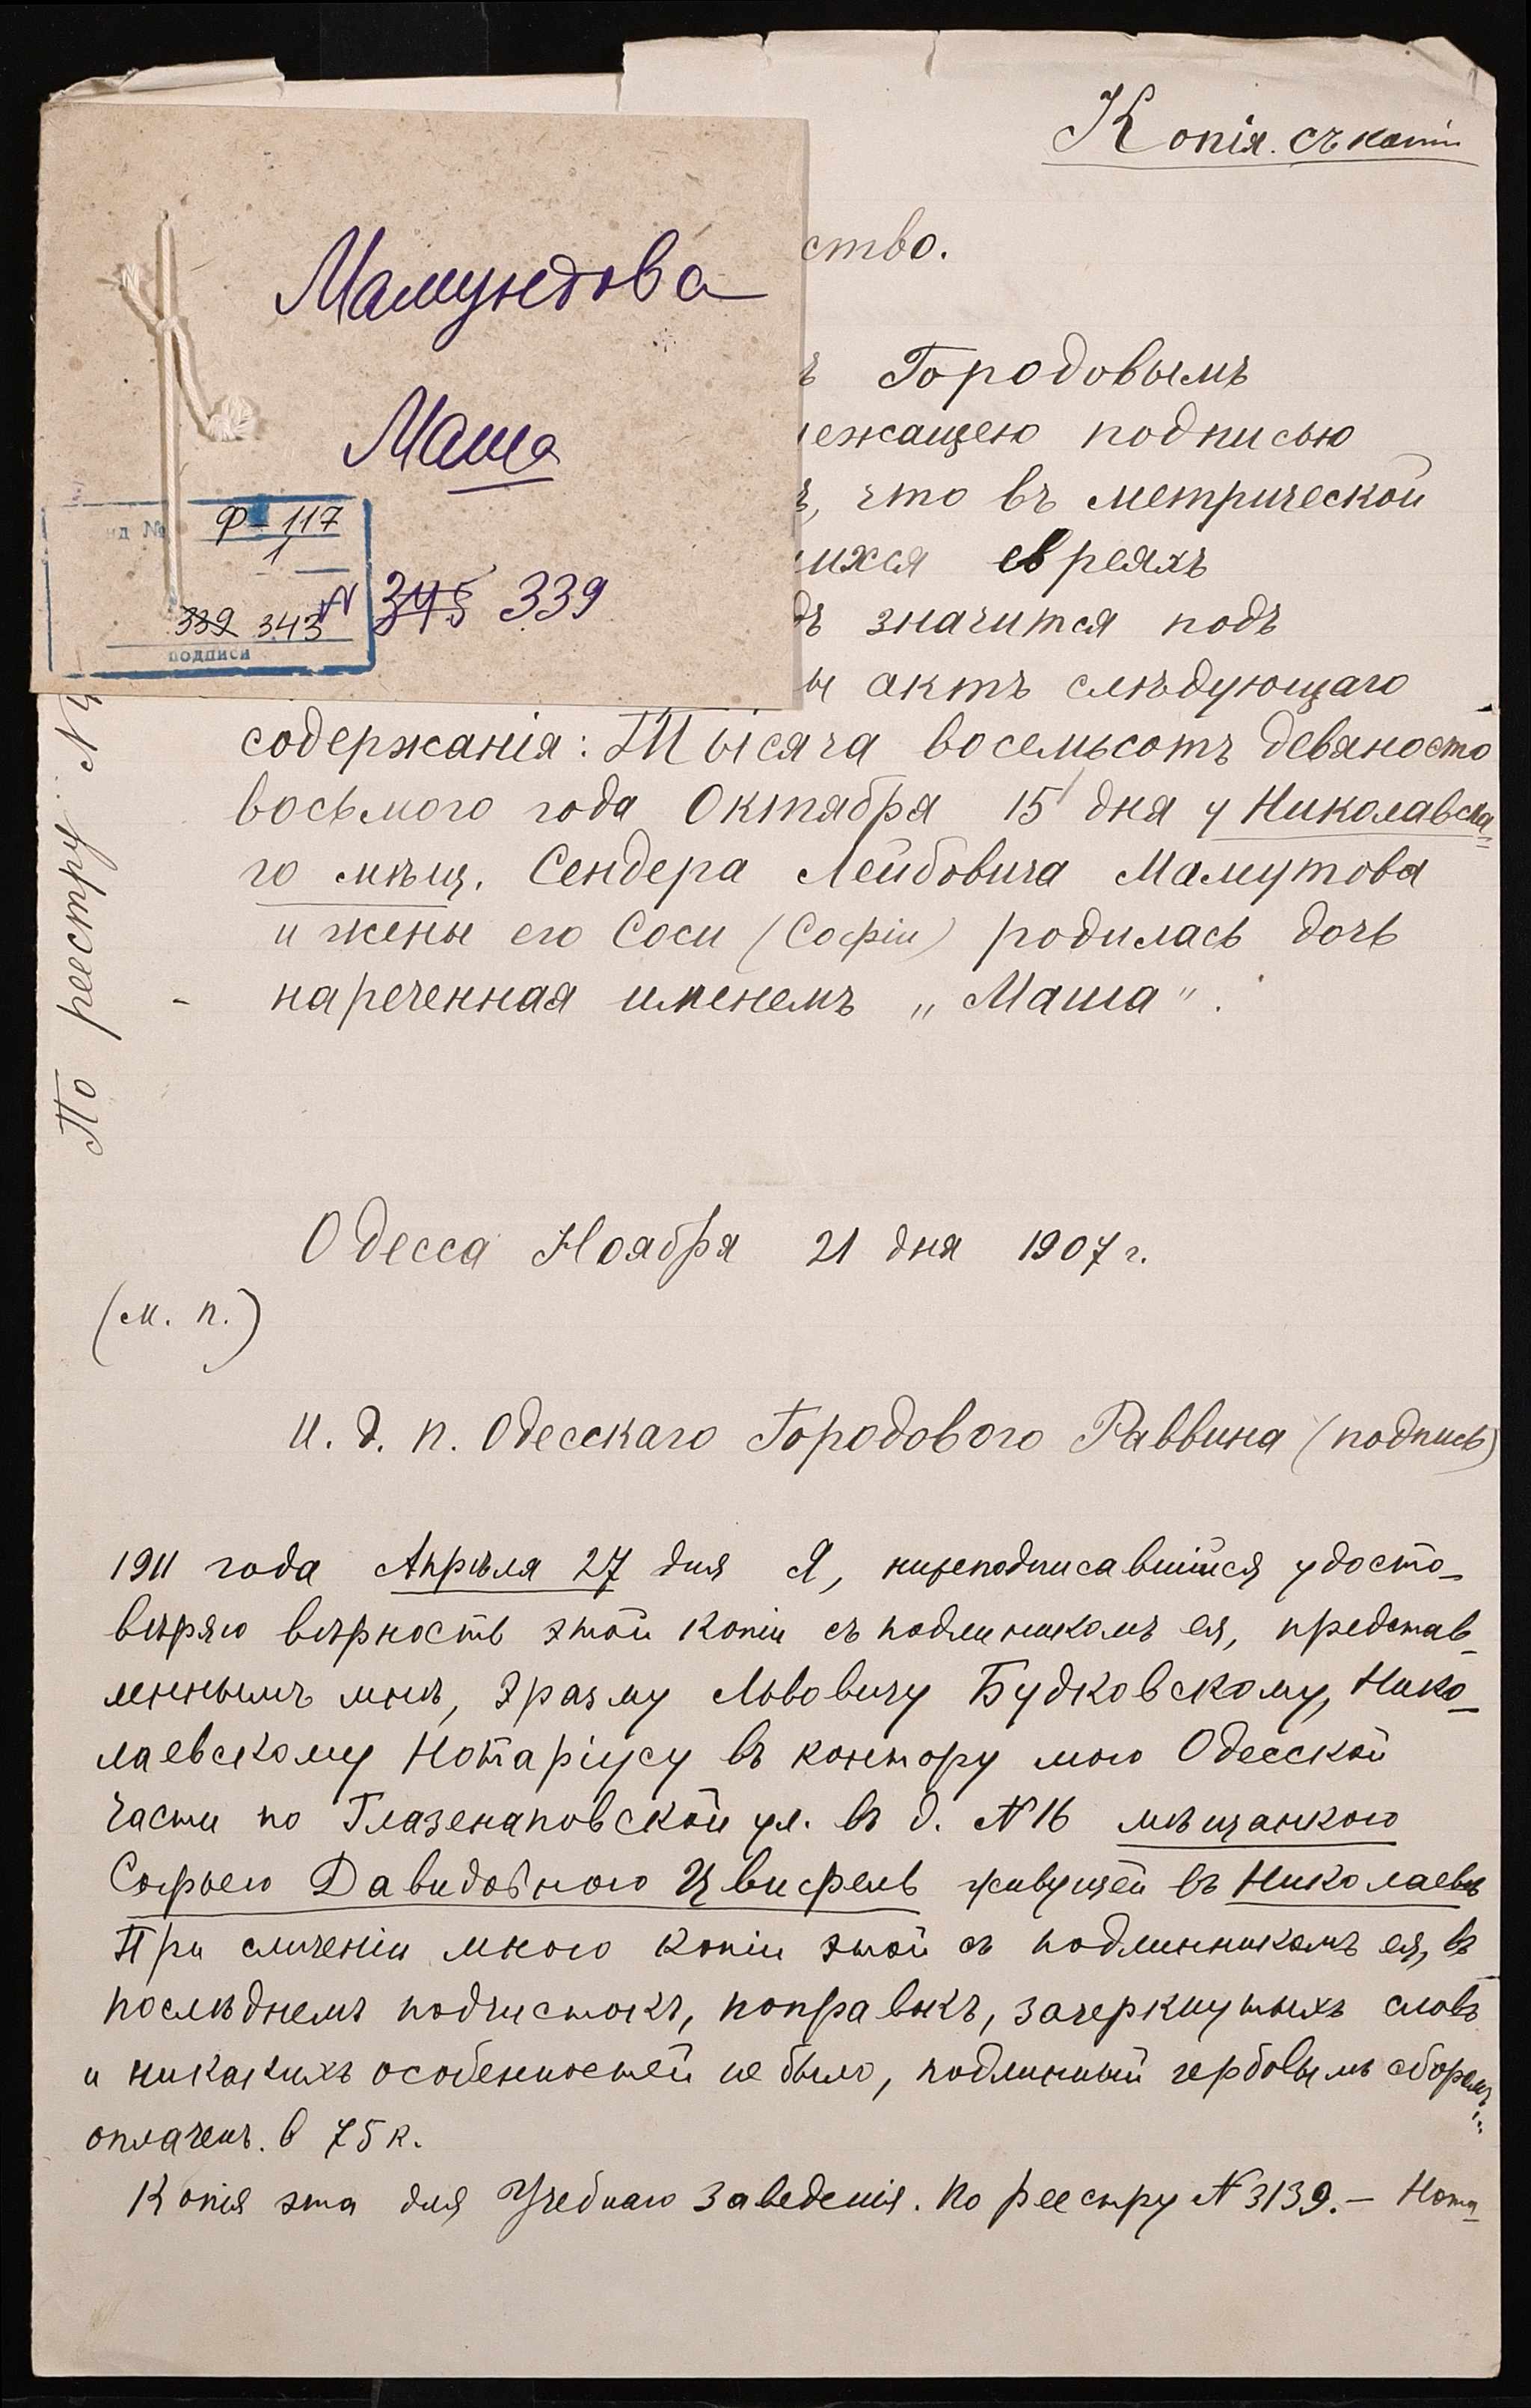 Копія съ копіи
Мамунтова
Маша
нд №
Ф-117
1
339 343
N 345 339
подписи
ство.
ъ Городовымъ
лежащею подписью
ъ, что въ метрической
шихся евреяхъ
дъ значится подъ
ы актъ слѣдующаго
содержанія: Тысяча восемьсотъ девяносто
восьмого года Октября 15 дня у Николавска-
го мѣщ. Сендера Лейбовича Мамутова
и жены его Соси (Софіи) родилась дочь
нареченная именемъ „Маша".
По реестру N
Одесса Ноября 21 дня 1907 г.
(м. п.)
И. д. п. Одесскаго Городового Раввина (подпись)
1911 года Апрѣля 27 дня Я, нижеподписавшійся удосто-
вѣряю вѣрность этой копіи съ подлиникомъ ея, представ-
леннымъ мнѣ, Эразму Львовичу Будковскому, Нико-
лаевскому Нотаріусу въ контору мою Одесской
части по Глазенаповской ул. въ д. N 16 мѣщанкою
Софьею Давидовною Цвифель живущей въ Николаевѣ
При сличеніи мною копіи этой съ подлинникомъ ея, въ
послѣднемъ подчистокъ, поправокъ, зачеркнутыхъ словъ
и никакихъ особенностей не было, подлинный гербовымъ сборомъ
оплаченъ. в 75 к.
Копія эта для Учебнаго Заведенія. По реестру N 3139.— Нота-